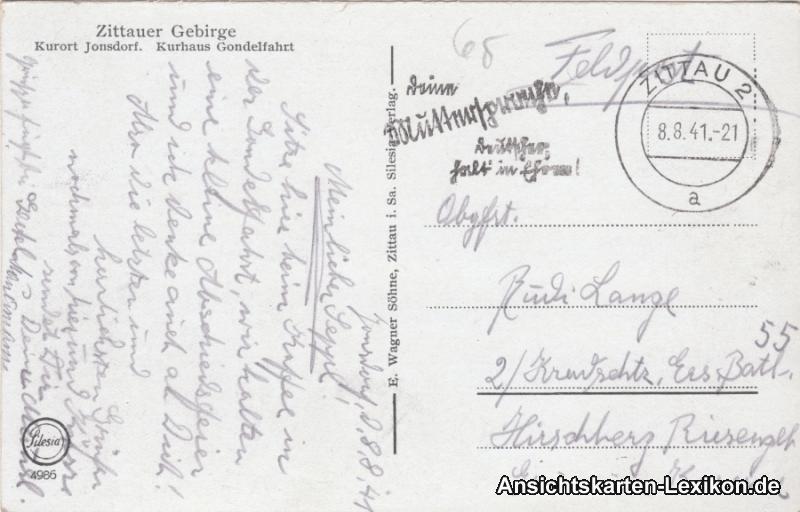 Zittauer Gebirge
Kurort Jonsdorf. Kurhaus Gondelfahrt
68
Feldpost
Deine
Muttersprache,
Deutscher,
halt in Ehren!
ZITTAU 2
8.8.41.-21
a
Obgfrt.
Rudi Lange
55
2/ Ers. Batl.
Hirschberg Riesengb
E. Wagner Söhne, Zittau i. Sa. Silesia-Verlag.
Jonsdorf, d. 8.8.41
Mein lieber Seppl!
Sitze hier beim Kaffee in
der Gondelfahrt, wir halten
eine kleine Abschiedsfeier
und ich denke auch an Dich!
Also die letzten und
herzlichsten Grüße
nochmals von hier und Küsse
sendet Dir
Deine
Silesia
4986
Ansichtskarten-Lexikon.de